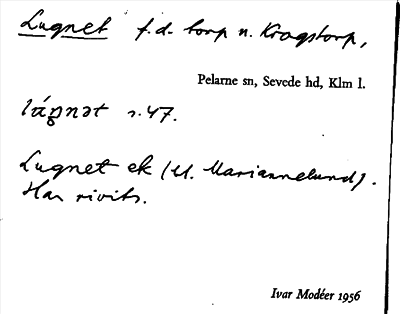 Lugnet f.d. torp n. Krogstorp,
Pelarne sn, Sevede hd, Klm l.
lúgnət s. 47.
Lugnet ek (bl. Mariannelund).
Har rivits.
Ivar Modéer 1956